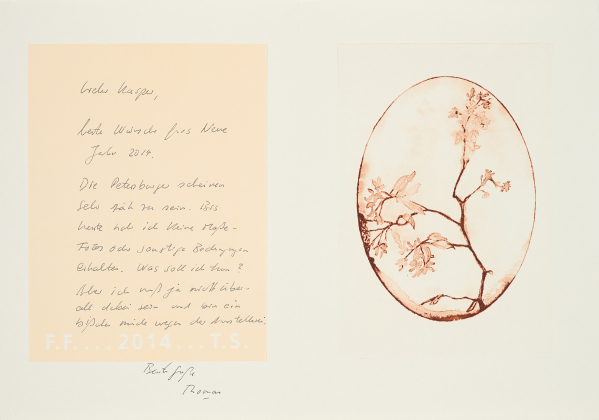 Lieber Kasper,
beste Wünsche fürs Neue
Jahr 2014.
Die Petersburger scheinen
sehr spät zu sein. Bis
heute habe ich keine Maße-
Fotos oder sonstige Bedingungen
erhalten. Was soll ich tun?
Aber ich muß ja nicht über-
all dabei sein und bin ein
bißchen müde wegen der Ausstellerei.
F.F. .... 2014 ... T.S.
Beste Grüße
Thomas